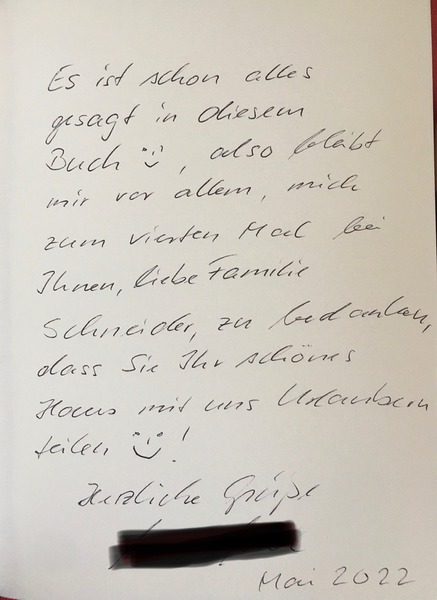 Es ist schon alles
gesagt in diesem
Buch :), also bleibt
mir vor allem, mich
zum vierten Mal bei
Ihnen, liebe Familie
Schneider, zu bedanken,
dass Sie Ihr schönes
Haus mit uns Urlaubern
teilen :)!
Herzliche Grüße
Mai 2022